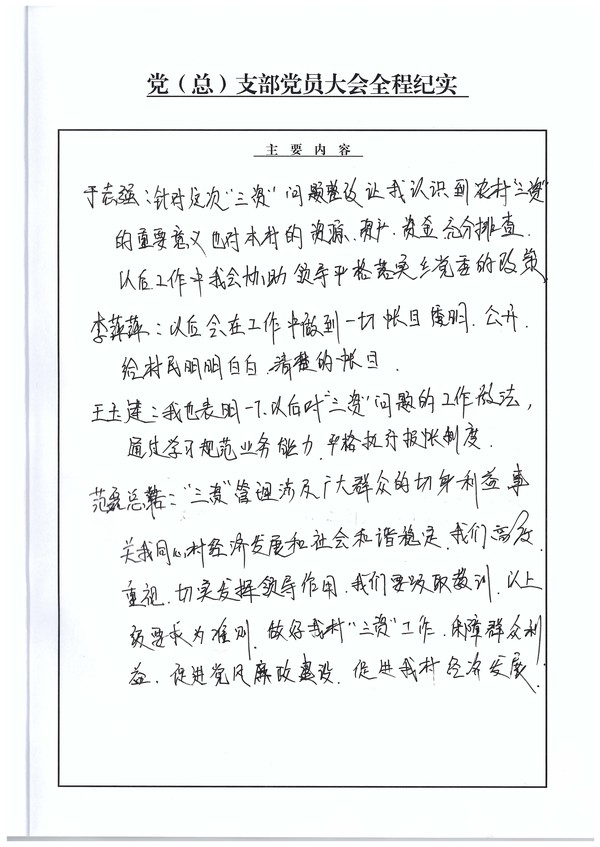 党（总）支部党员大会全程纪实
主要内容
于志强：针对这次“三资”问题整改让我认识到农村“三资”
的重要意义也对本村的资源、资产、资金充分排查.
以后工作中我会协助领导严格落实乡党委的政策
李萍萍：以后会在工作中做到一切帐目透明、公开.
给村民明明白白、清楚的帐目.
王玉建：我也表明一下以后对“三资”问题的工作做法，
通过学习规范业务能力，严格执行报帐制度.
范磊总结：“三资”管理涉及广大群众的切身利益事
关我同心村经济发展和社会和谐稳定.我们高度
重视.切实发挥领导作用.我们要吸取教训.以上
级要求为准则.做好我村“三资”工作.保障群众利
益.促进党风廉政建设.促进我村经济发展.